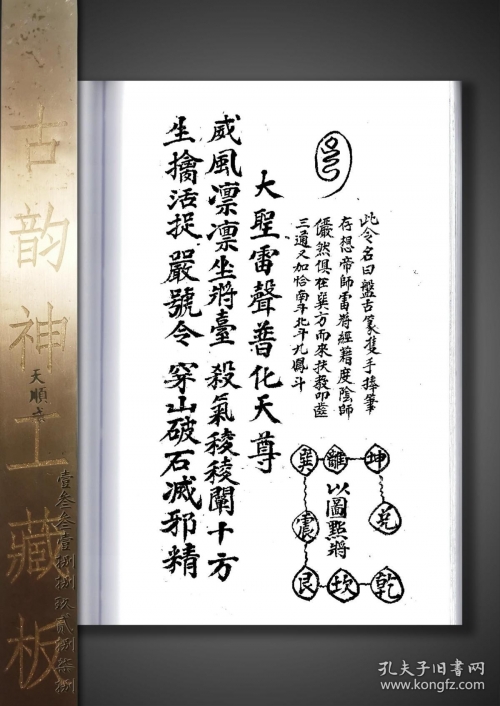 此令名曰盤古篆隻手捧筆
存想帝師雷將經籍度陰師
儼然俱在巽方而來扶教叩齒
三通又加恰南斗北斗九鳳斗
大聖雷聲普化天尊
威風凛凛坐將臺 殺氣稜稜闡十方
生擒活捉嚴號令 穿山破石滅邪精
巽 離 坤
以圖點將
震 兌
艮 坎 乾
古韵神工藏板
天順
壹叁叁壹捌捌玖貳捌柒捌
孔夫子旧書网
www.kongfz.com